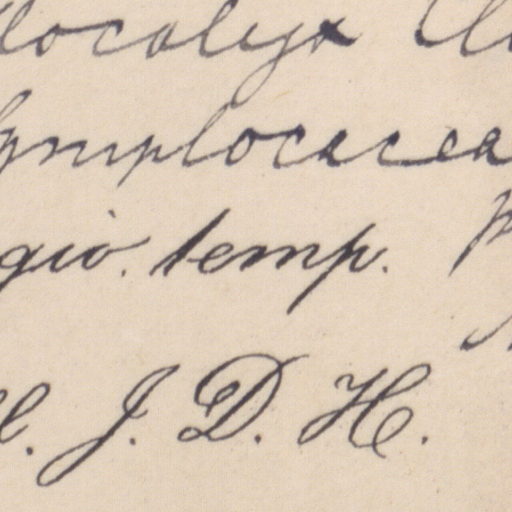 localyx
ymplocacea
gio. temp.
l. J. D. H.